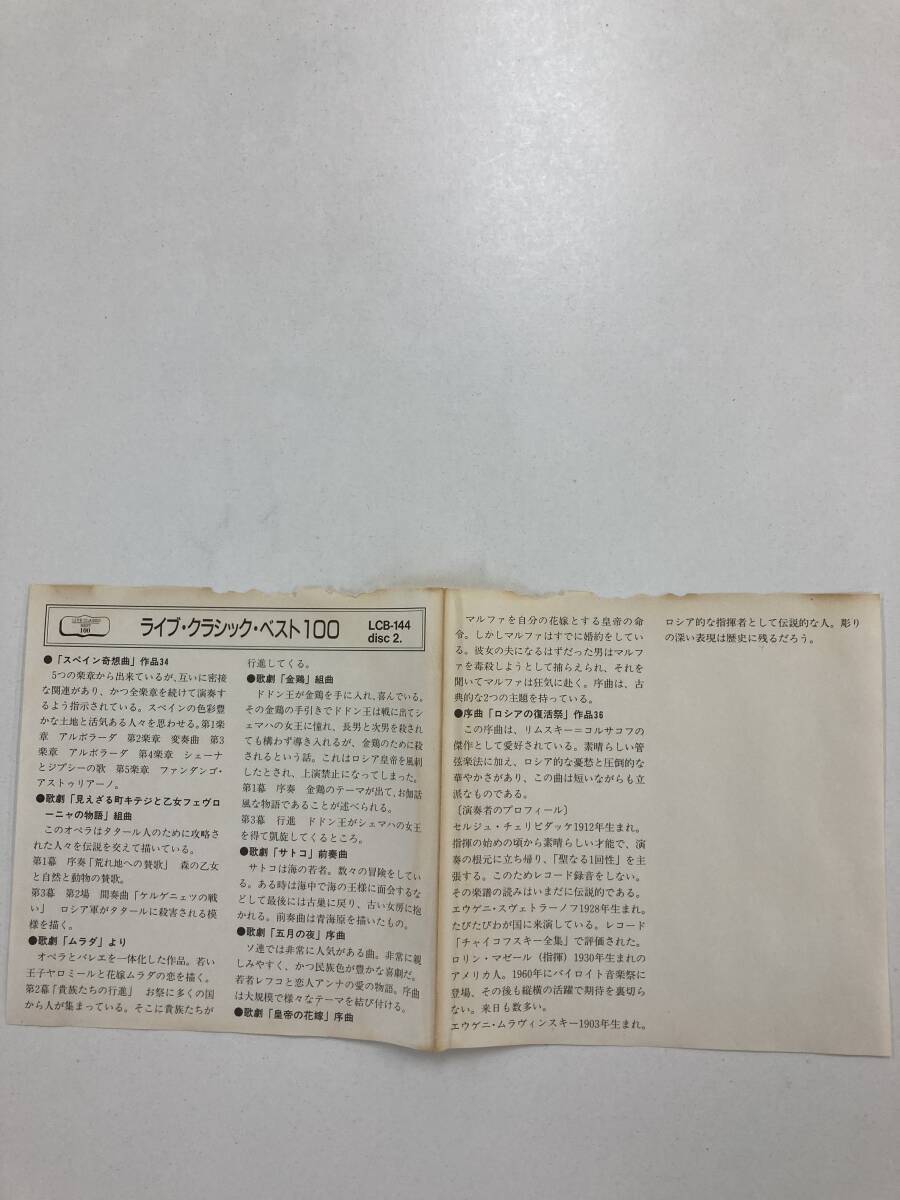 LIVE CLASSIC
BEST
100
ライブ・クラシック・ベスト100
LCB-144
disc 2.
●「スペイン奇想曲」作品34
5つの楽章から出来ているが、互いに密接
な関連があり、かつ全楽章を続けて演奏す
るよう指示されている。スペインの色彩豊
かな土地と活気ある人々を思わせる。第1楽
章 アルボラーダ 第2楽章 変奏曲 第3
楽章 アルボラーダ 第4楽章 シェーナ
とジプシーの歌 第5楽章 ファンダンゴ・
アストゥリアーノ。
●歌劇「見えざる町キテジと乙女フェヴロ
ーニャの物語」組曲
このオペラはタタール人のために攻略さ
れた人々を伝説を交えて描いている。
第1幕 序奏「荒れ地への賛歌」 森の乙女
と自然と動物の賛歌。
第3幕 第2場 間奏曲「ケルゲニェツの戦
い」 ロシア軍がタタールに殺害される模
様を描く。
●歌劇「ムラダ」より
オペラとバレエを一体化した作品。若い
王子ヤロミールと花嫁ムラダの恋を描く。
第2幕「貴族たちの行進」 お祭に多くの国
から人が集まっている。そこに貴族たちが
行進してくる。
●歌劇「金鶏」組曲
ドドン王が金鶏を手に入れ、喜んでいる。
その金鶏の手引きでドドン王は戦に出てシ
ェマハの女王に憧れ、長男と次男を殺され
ても構わず導き入れるが、金鶏のために殺
されるという話。これはロシア皇帝を風刺
したとされ、上演禁止になってしまった。
第1幕 序奏 金鶏のテーマが出て、お伽話
風な物語であることが述べられる。
第3幕 行進 ドドン王がシェマハの女王
を得て凱旋してくるところ。
●歌劇「サトコ」前奏曲
サトコは海の若者。数々の冒険をしてい
る。ある時は海中で海の王様に面会するな
どして最後には古巣に戻り、古い女房に抱
かれる。前奏曲は青海原を描いたもの。
●歌劇「五月の夜」序曲
ソ連では非常に人気がある曲。非常に親
しみやすく、かつ民族色が豊かな喜劇だ。
若者レフコと恋人アンナの愛の物語。序曲
は大規模で様々なテーマを結び付ける。
●歌劇「皇帝の花嫁」序曲
マルファを自分の花嫁とする皇帝の命
令。しかしマルファはすでに婚約をしてい
る。彼女の夫になるはずだった男はマルフ
ァを毒殺しようとして捕らえられ、それを
聞いてマルファは狂気に赴く。序曲は、古
典的な2つの主題を持っている。
●序曲「ロシアの復活祭」作品36
この序曲は、リムスキー＝コルサコフの
傑作として愛好されている。素晴らしい管
弦楽法に加え、ロシア的な憂愁と圧倒的な
華やかさがあり、この曲は短いながらも立
派なものである。
〔演奏者のプロフィール〕
セルジュ・チェリビダッケ1912年生まれ。
指揮の始めの頃から素晴らしい才能で、演
奏の根元に立ち帰り、「聖なる1回性」を主
張する。このためレコード録音をしない。
その楽譜の読みはいまだに伝説的である。
エウゲニ・スヴェトラーノフ1928年生まれ。
たびたびわが国に来演している。レコード
「チャイコフスキー全集」で評価された。
ロリン・マゼール（指揮）1930年生まれの
アメリカ人。1960年にバイロイト音楽祭に
登場、その後も縦横の活躍で期待を裏切ら
ない。来日も数多い。
エウゲニ・ムラヴィンスキー1903年生まれ。
ロシア的な指揮者として伝説的な人。彫り
の深い表現は歴史に残るだろう。